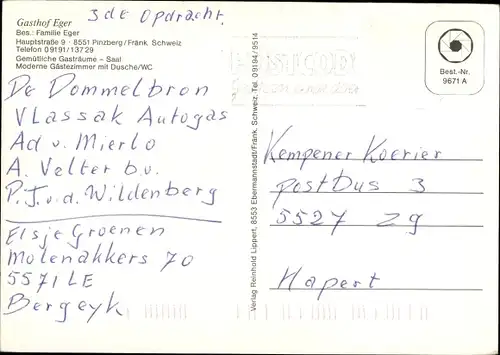 3de Opdracht.
Gasthof Eger
Bes.: Familie Eger
Hauptstraße 9 · 8551 Pinzberg/Fränk. Schweiz
Telefon 09191/13729
Gemütliche Gasträume – Saal
Moderne Gästezimmer mit Dusche/WC
De Dommelbron
Vlassak Autogas
Ad v. Mierlo
A. Velter b.v.
P.J.v.d. Wildenberg
Elsje Groenen
Molenakkers 70
5571 LE
Bergeyk
Verlag Reinhold Lippert, 8553 Ebermannstadt/Fränk. Schweiz, Tel. 09194/9514
POSTCODE
Best.-Nr.
9671 A
Kempener Koerier
postbus 3
5527 zg
Hapert